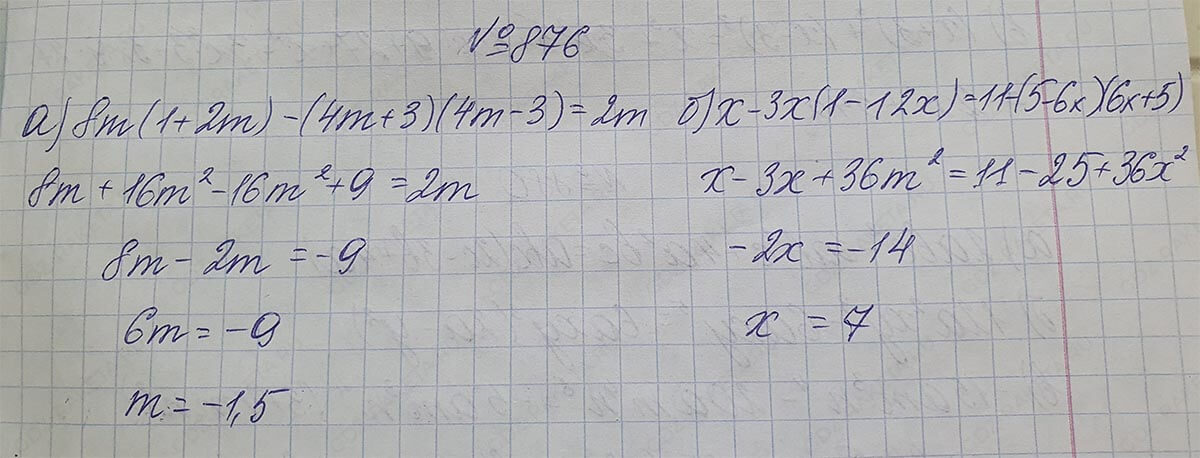 №876
а) 8m(1+2m)-(4m+3)(4m-3)=2m
8m+16m²-16m²+9=2m
8m-2m=-9
6m=-9
m=-1,5
б) x-3x(1-12x)=11-(5-6x)(6x+5)
x-3x+36m²=11-25+36x²
-2x=-14
x=7